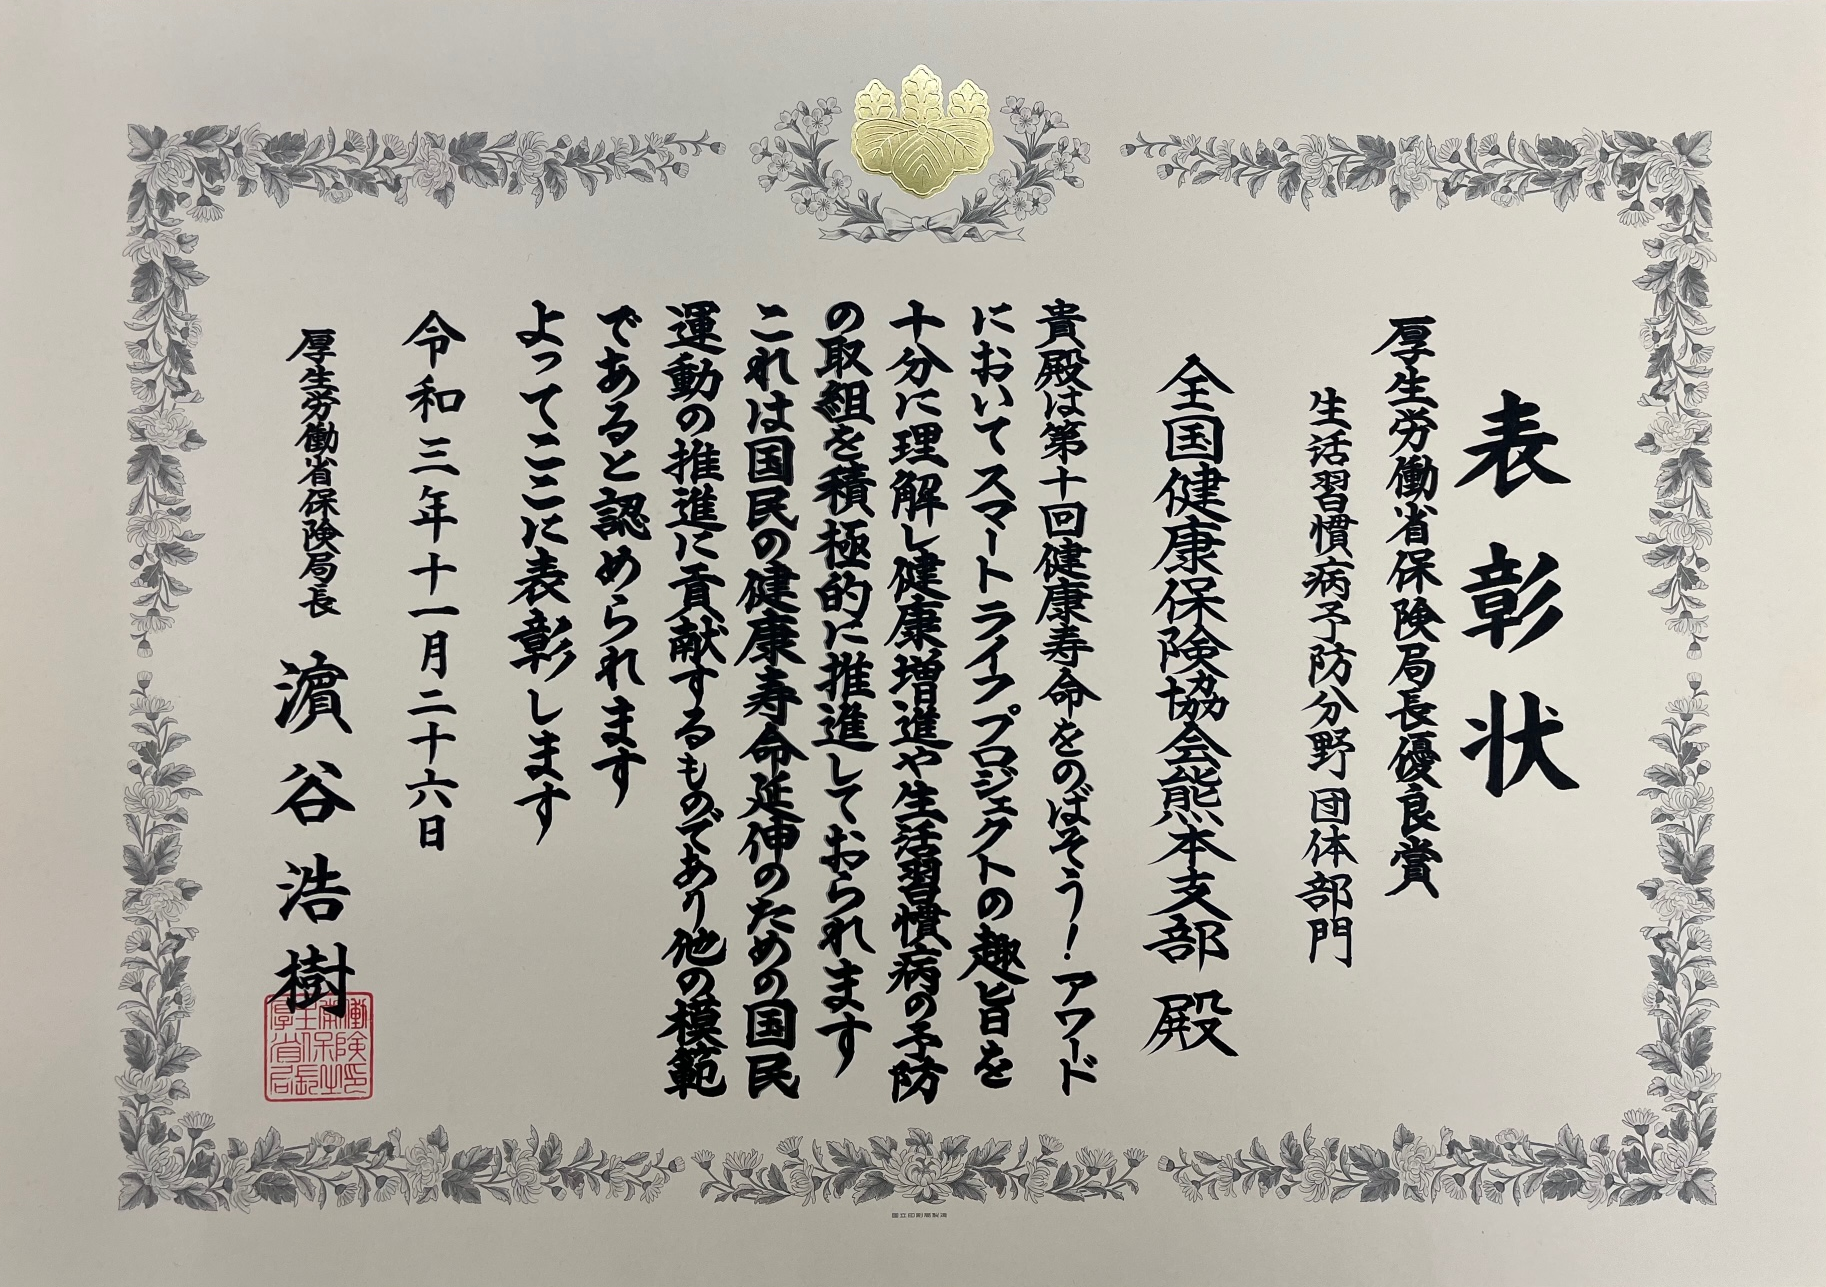 表彰状
厚生労働省保険局長優良賞
生活習慣病予防分野 団体部門
全国健康保険協会熊本支部 殿
貴殿は第十回健康寿命をのばそう！アワード
においてスマートライフプロジェクトの趣旨を
十分に理解し健康増進や生活習慣病の予防
の取組を積極的に推進しておられます
これは国民の健康寿命延伸のための国民
運動の推進に貢献するものであり他の模範
であると認められます
よってここに表彰します
令和三年十一月二十六日
厚生労働省保険局長 濵谷浩樹
国立印刷局製造